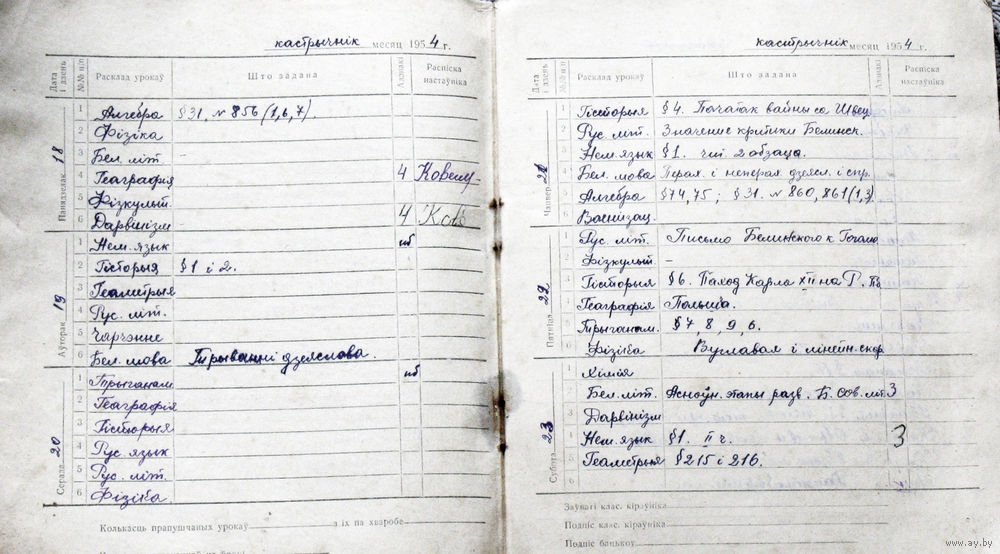 кастрычнік месяц 1954 г.
Дата і дзень №№ п/п Расклад урокаў Што задана Адзнакі Распіска настаўніка
Панядзелак 18
1 Алгебра § 31. № 856 (1,6,7).
2 Фізіка
3 Бел. літ. –
4 Геаграфія 4
5 Фізкульт.
6 Дарвінізм 4
Аўторак 19
1 Нем. язык нб
2 Гісторыя § 1 і 2.
3 Геаметрыя
4 Рус. літ.
5 Чарчэнне
6 Бел. мова Трыванні дзеяслова.
Серада 20
1 Трыганам. нб
2 Геаграфія
3 Гісторыя
4 Рус. язык
5 Рус. літ.
6 Фізіка.
Колькасць прапушчаных урокаў а іх па хваробе
кастрычнік месяц 1954 г.
Дата і дзень №№ п/п Расклад урокаў Што задана Адзнакі Распіска настаўніка
Чацвер 21
1 Гісторыя § 4. Пачатак вайны са Швец.
2 Рус. літ. Значение критики Белинск.
3 Нем. язык § 1. чыт 2 абзаца.
4 Бел. мова дзеясл. і спр.
5 Алгебра § 74, 75; § 31. № 860, 861 (1,3).
6 Ваенізац.
Пятніца 22
1 Рус. літ. Письмо Белинского к Гоголю
2 Фізкульт –
3 Гісторыя § 6. Паход Карла XII на
4 Геаграфія Польша.
5 Трыганам. § 7, 8, 9, 6.
6 Фізіка Вуглавая і лінейн. скор.
Субота 23
Хімія
Бел. літ. Асноўн. этапы разв. Б. сов. літ 3
3 Дарвінізм
Нем. язык § 1. II ч. 3
5 Геаметрыя § 215 і 216.
6
Заўвагі клас. кіраўніка
Подпіс клас. кіраўніка
Подпіс банькоў
www.ay.by